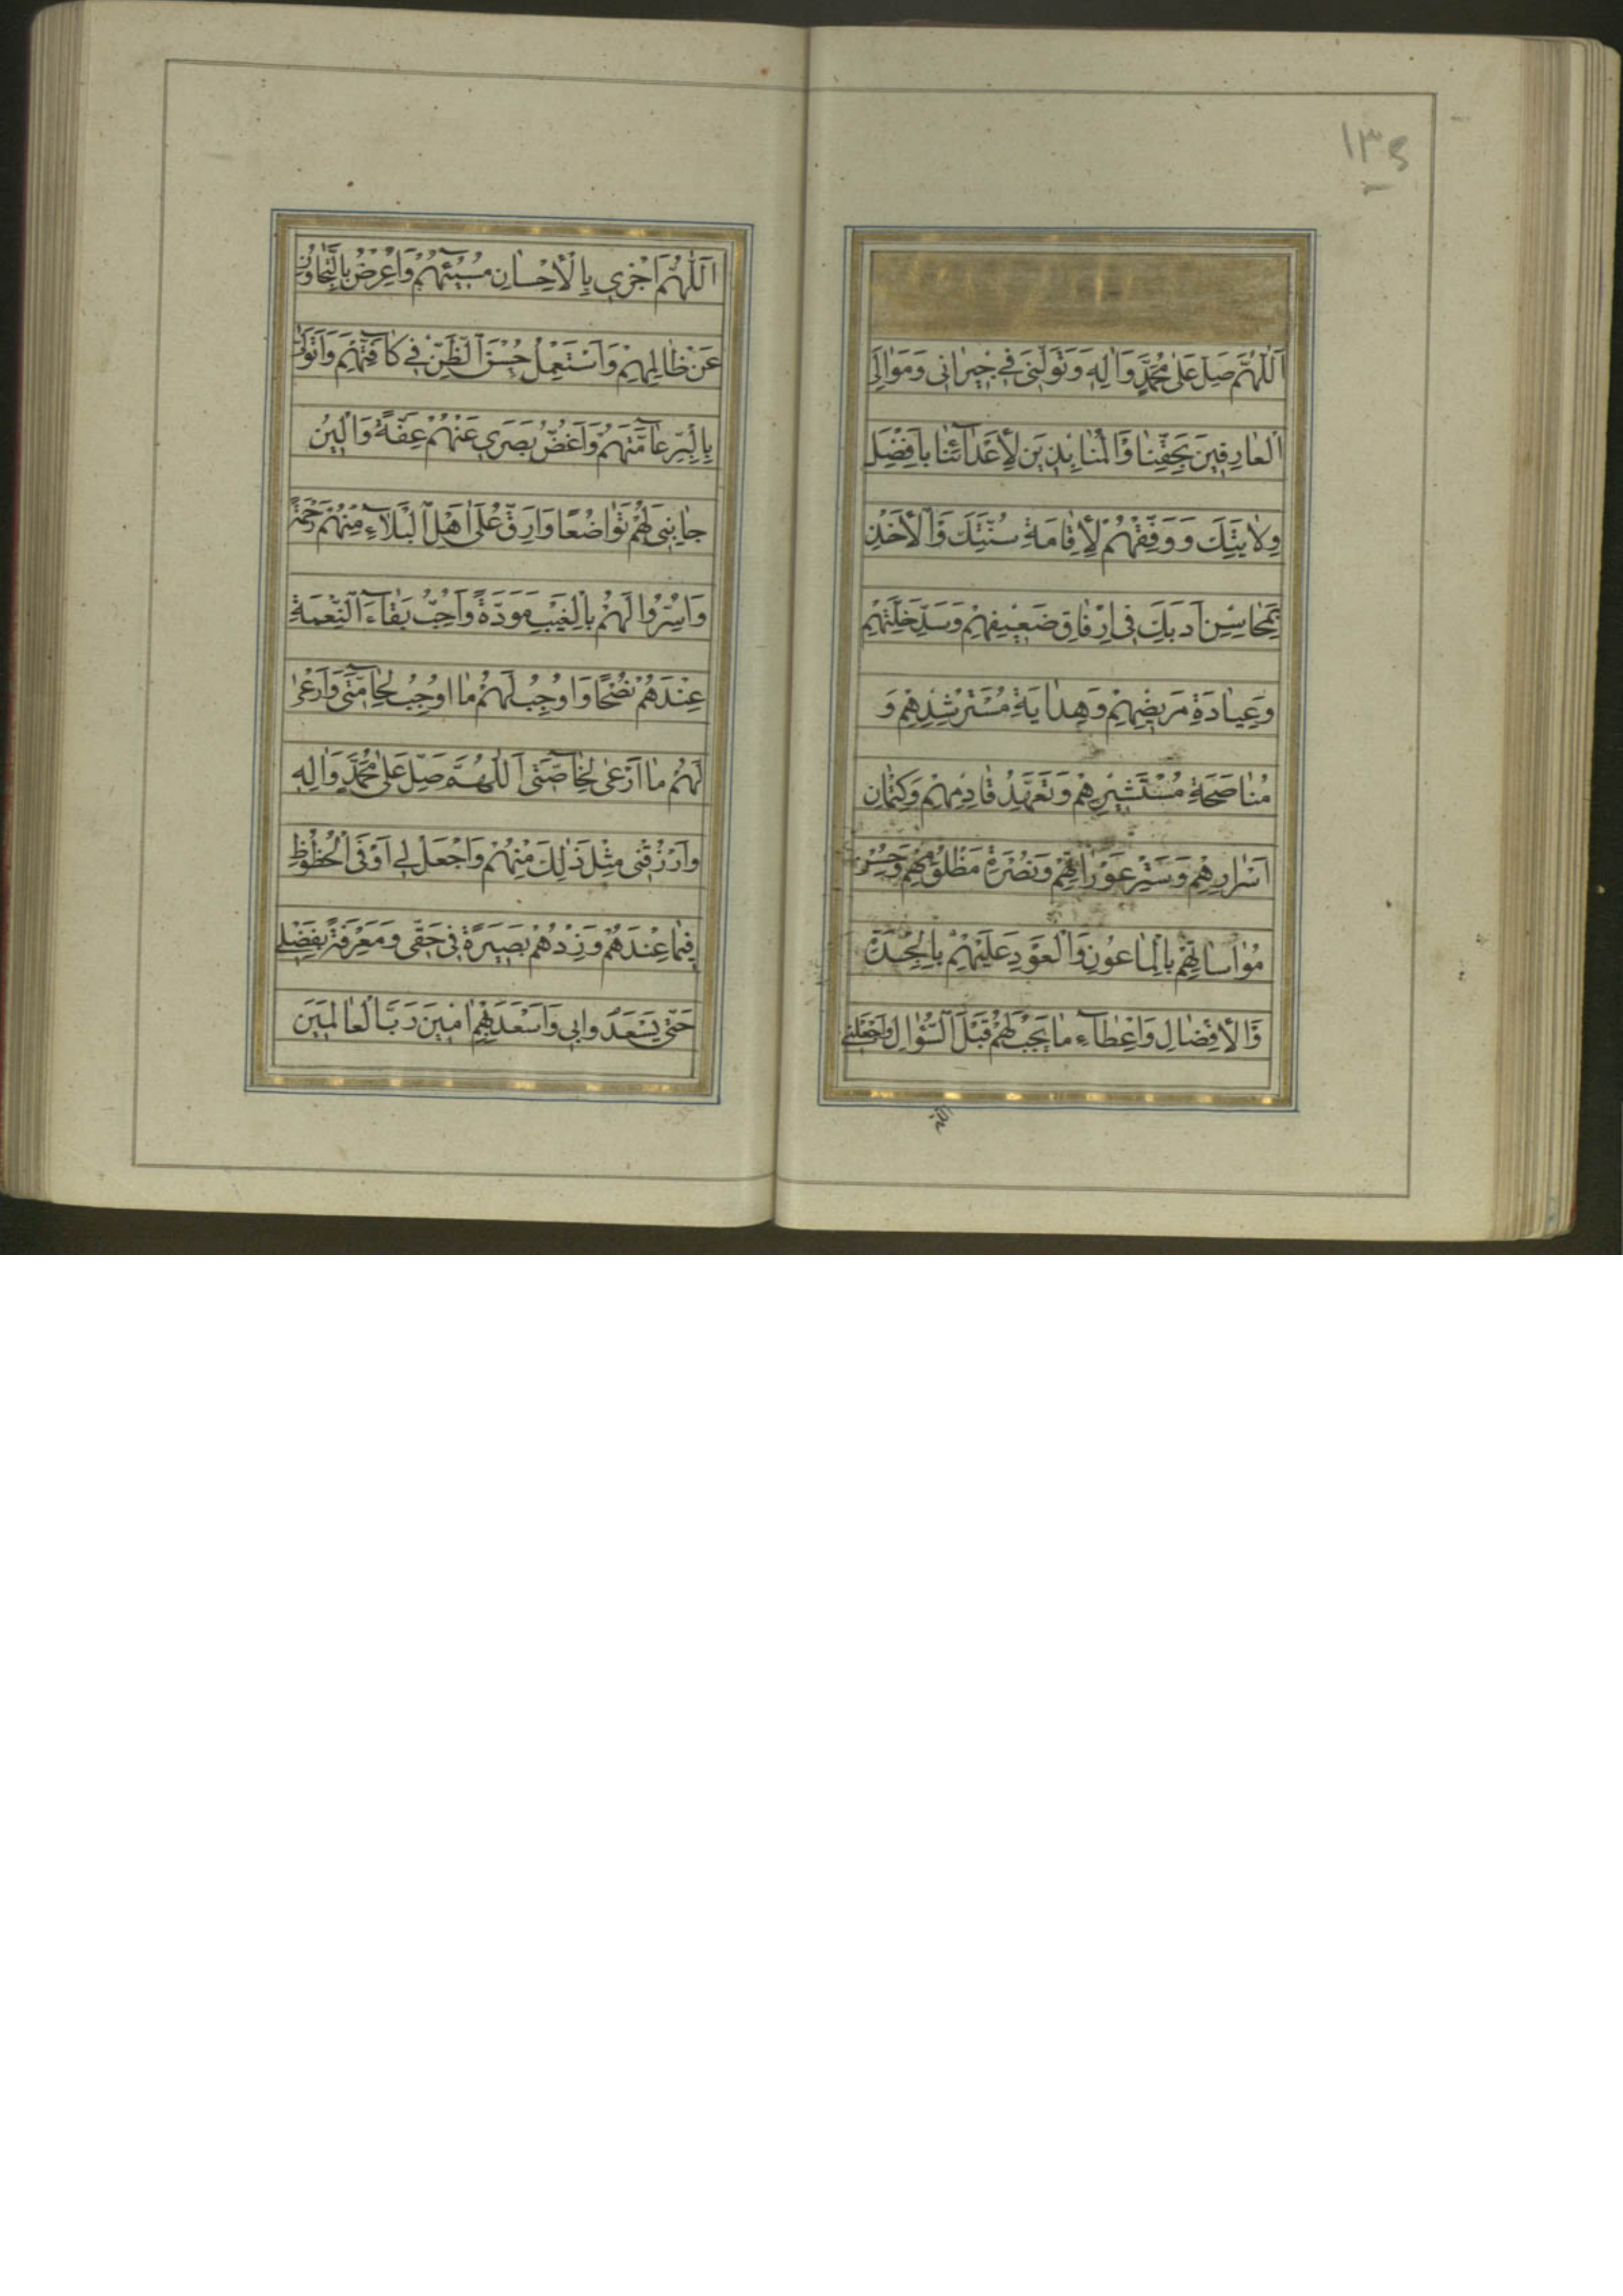 ١٣٤
اَللّٰهُمَّ صَلِّ عَلٰى مُحَمَّدٍ وَاٰلِهِ وَتَوَلَّنِى فِى جِيرَانِى وَمَوَالِىَّ
الْعَارِفِينَ بِحَقِّنَا وَالْمُنَابِذِينَ لِأَعْدَآئِنَا بِاَفْضَلِ
وِلَايَتِكَ وَوَفِّقْهُمْ لِأِقَامَةِ سُنَّتِكَ وَالْأَخْذِ
بِمَحَاسِنِ اَدَبِكَ فِى اِرْفَاقِ ضَعِيفِهِمْ وَسَدِّ خَلَّتِهِمْ
وَعِيَادَةِ مَرِيضِهِمْ وَهِدَايَةِ مُسْتَرْشِدِهِمْ وَ
مُنَاصَحَةِ مُسْتَشِيرِهِمْ وَتَعَهُّدِ قَادِمِهِمْ وَكِتْمَانِ
اَسْرَارِهِمْ وَسَتْرِ عَوْرَاتِهِمْ وَنُصْرَةِ مَظْلُومِهِمْ وَحُسْنِ
مُوَاسَاتِهِمْ بِالْمَاعُونِ وَالْعَوْدِ عَلَيْهِمْ بِالْجِدَةِ
وَالْأِفْضَالِ وَاِعْطَآءِ مَا يَجِبُ لَهُمْ قَبْلَ السُّؤَالِ وَاجْعَلْنِى
اللهم
اَللّٰهُمَّ اَجْزِى بِالْأِحْسَانِ مُسِيٓئَهُمْ وَاُعْرِضُ بِالتَّجَاوُزِ
عَنْ ظَالِمِهِمْ وَاَسْتَعْمِلُ حُسْنَ الظَّنِّ فِى كَآفَّتِهِمْ وَاَتَوَلّٰى
بِالْبِرِّ عَآمَّتَهُمْ وَاَغُضُّ بَصَرِى عَنْهُمْ عِفَّةً وَاُلِينُ
جَانِبِى لَهُمْ تَوَاضُعًا وَاَرِقُّ عَلٰى اَهْلِ الْبَلَآءِ مِنْهُمْ رَحْمَةً
وَاُسِرُّوا لَهُمْ بِالْغَيْبِ مَوَدَّةً وَاُحِبُّ بَقَآءَ النِّعْمَةِ
عِنْدَهُمْ نُصْحًا وَاُوجِبُ لَهُمْ مَا اُوجِبُ لِحَآمَّتِى وَاَرْعٰى
لَهُمْ مَا اَرْعٰى لِخَآصَّتِى اَللّٰهُمَّ صَلِّ عَلٰى مُحَمَّدٍ وَاٰلِهِ
وَارْزُقْنِى مِثْلَ ذٰلِكَ مِنْهُمْ وَاجْعَلْ لِى اَوْفَى الْحُظُوظِ
فِيمَا عِنْدَهُمْ وَزِدْهُمْ بَصِيرَةً فِى حَقِّى وَمَعْرِفَةً بِفَضْلِى
حَتّٰى يَسْعَدُوا بِى وَاَسْعَدَ بِهِمْ اٰمِينَ رَبَّ الْعَالَمِينَ